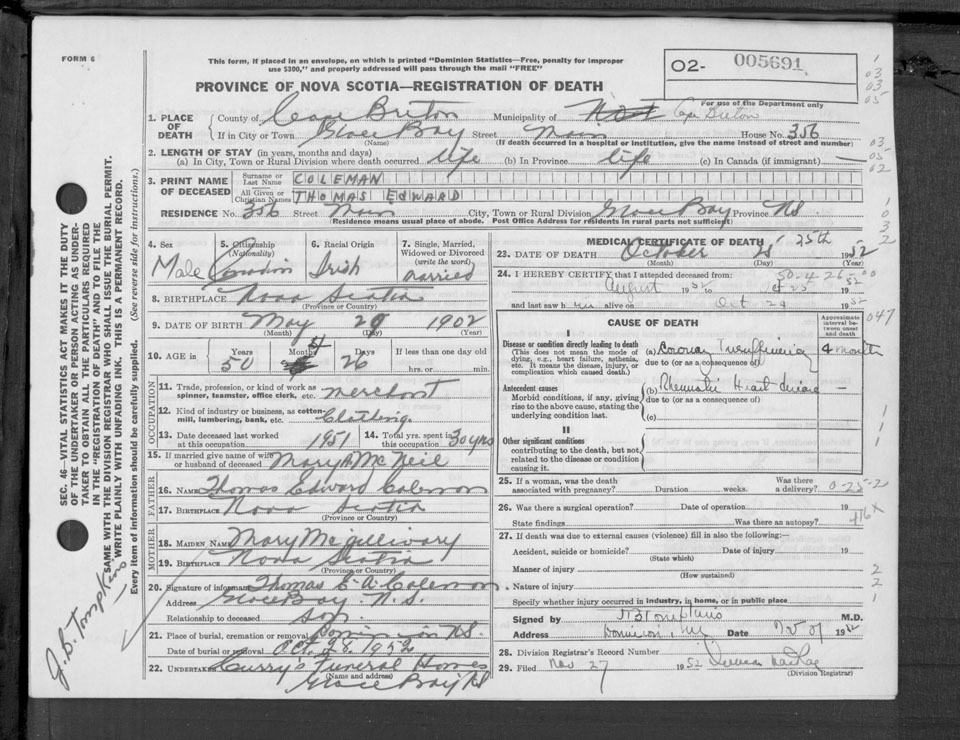 FORM 6
This form, if placed in an envelope, on which is printed "Dominion Statistics—Free, penalty for improper
use $300," and properly addressed will pass through the mail "FREE"
PROVINCE OF NOVA SCOTIA—REGISTRATION OF DEATH
O2- 005691
For use of the Department only
1. PLACE OF DEATH County of Cape Breton Municipality of Cape Breton
If in City or Town Glace Bay Street Main House No. 356
(Name) (If death occurred in a hospital or institution, give the name instead of street and number)
2. LENGTH OF STAY (in years, months and days)
(a) In City, Town or Rural Division where death occurred life (b) In Province life (c) In Canada (if immigrant) —
3. PRINT NAME OF DECEASED Surname or Last Name COLEMAN
All Given or Christian Names THOMAS EDWARD
RESIDENCE No. 356 Street Main City, Town or Rural Division Glace Bay Province N.S.
Residence means usual place of abode. Post Office Address for residents in rural parts not sufficient)
4. Sex Male
5. Citizenship (Nationality) Canadian
6. Racial Origin Irish
7. Single, Married, Widowed or Divorced (write the word) married
8. BIRTHPLACE Nova Scotia
(Province or Country)
9. DATE OF BIRTH May 29 1902
(Month) (Day) (Year)
10. AGE in Years 50 Months 4 Days 26 If less than one day old
hrs. or min.
OCCUPATION
11. Trade, profession, or kind of work as
spinner, teamster, office clerk, etc. merchant
12. Kind of industry or business, as cotton-
mill, lumbering, bank, etc. Clothing
13. Date deceased last worked
at this occupation 1951
14. Total yrs. spent in
this occupation 30 yrs
15. If married give name of wife
or husband of deceased Mary A McNeil
FATHER
16. NAME Thomas Edward Coleman
17. BIRTHPLACE Nova Scotia
(Province or Country)
MOTHER
18. MAIDEN NAME Mary McGillivary
19. BIRTHPLACE Nova Scotia
(Province or Country)
20. Signature of informant Thomas E. A. Coleman
Address Glace Bay. N.S.
Relationship to deceased son
21. Place of burial, cremation or removal Dominion N.S.
Date of burial or removal Oct. 28. 1952
22. Undertaker Curry's Funeral Homes
(Name and address)
Glace Bay NS
MEDICAL CERTIFICATE OF DEATH
23. DATE OF DEATH October 25 25th 1952
(Month) (Day) (Year)
24. I HEREBY CERTIFY that I attended deceased from:
August 1952 to Oct 25 1952
and last saw h im alive on Oct 24 1952
CAUSE OF DEATH
Approximate interval between onset and death
I
Disease or condition directly leading to death
(This does not mean the mode of
dying, e.g., heart failure, asthenia,
etc. It means the disease, injury, or
complication which caused death.)
(a) Coronary Insufficiency 4 months
due to (or as a consequence of)
Antecedent causes
Morbid conditions, if any, giving
rise to the above cause, stating the
underlying condition last.
(b) Rheumatic Heart disease —
due to (or as a consequence of)
(c)
II
Other significant conditions
contributing to the death, but not
related to the disease or condition
causing it.
25. If a woman, was the death
associated with pregnancy? Duration weeks. Was there
a delivery?
26. Was there a surgical operation? Date of operation 19
State findings Was there an autopsy?
27. If death was due to external causes (violence) fill in also the following:—
Accident, suicide or homicide? Date of injury 19
(State which)
Manner of injury
(How sustained)
Nature of injury
Specify whether injury occurred in industry, in home, or in public place
Signed by J B Tompkins M.D.
Address Dominion Date Nov 27 1952
28. Division Registrar's Record Number
29. Filed Nov 27 1952
(Division Registrar)
SEC. 46—VITAL STATISTICS ACT MAKES IT THE DUTY
OF THE UNDERTAKER OR PERSON ACTING AS UNDER-
TAKER TO OBTAIN ALL THE PARTICULARS REQUIRED
IN THE "REGISTRATION OF DEATH" AND TO FILE THE
SAME WITH THE DIVISION REGISTRAR WHO SHALL ISSUE THE BURIAL PERMIT.
WRITE PLAINLY WITH UNFADING INK. THIS IS A PERMANENT RECORD.
Every item of information should be carefully supplied. (See reverse side for instructions.)
J. B. Tompkins